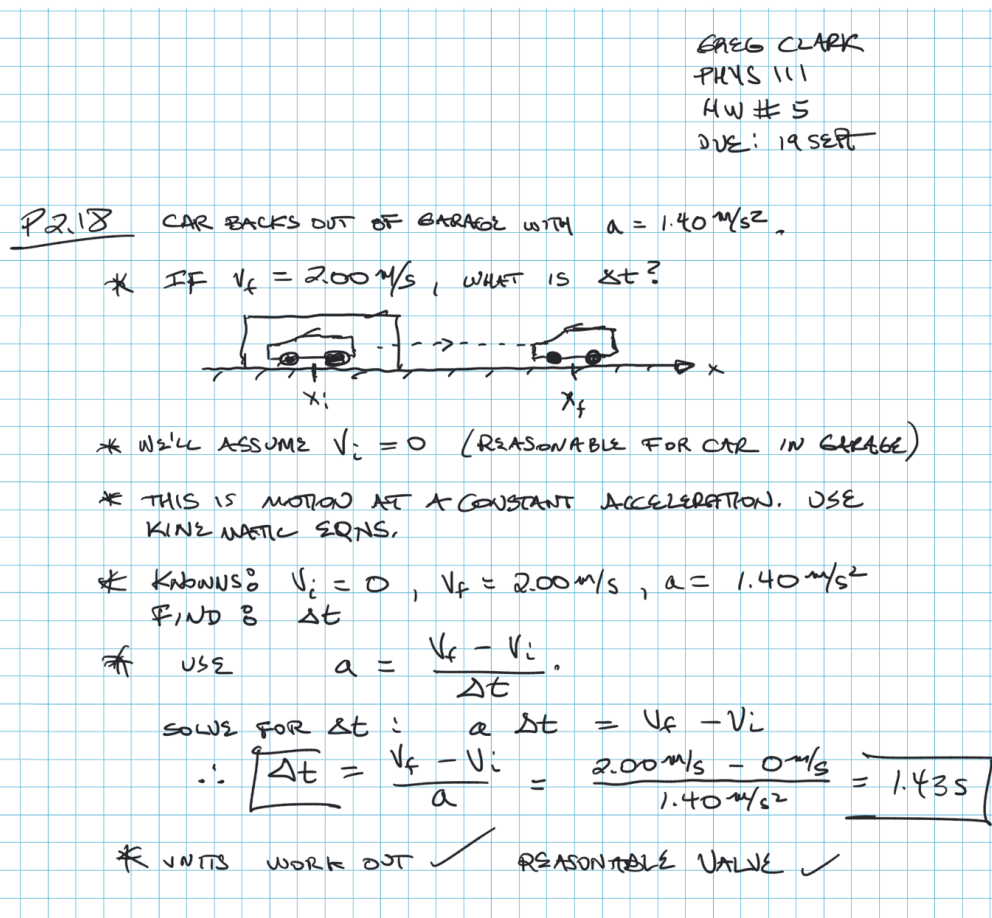 GREG CLARK
PHYS 111
HW # 5
DUE: 19 SEPT
P2.18 CAR BACKS OUT OF GARAGE WITH a = 1.40 m/s².
* IF Vf = 2.00 m/s, WHAT IS Δt?
x
xi xf
* WE'LL ASSUME Vi = 0 (REASONABLE FOR CAR IN GARAGE)
* THIS IS MOTION AT A CONSTANT ACCELERATION. USE
KINEMATIC EQNS.
* KNOWNS: Vi = 0, Vf = 2.00 m/s, a = 1.40 m/s²
FIND: Δt
* USE a = (Vf - Vi)/Δt.
SOLVE FOR Δt: a Δt = Vf - Vi
∴ Δt = (Vf - Vi)/a = (2.00 m/s - 0 m/s)/(1.40 m/s²) = 1.43 s
* UNITS WORK OUT ✓ REASONABLE VALUE ✓